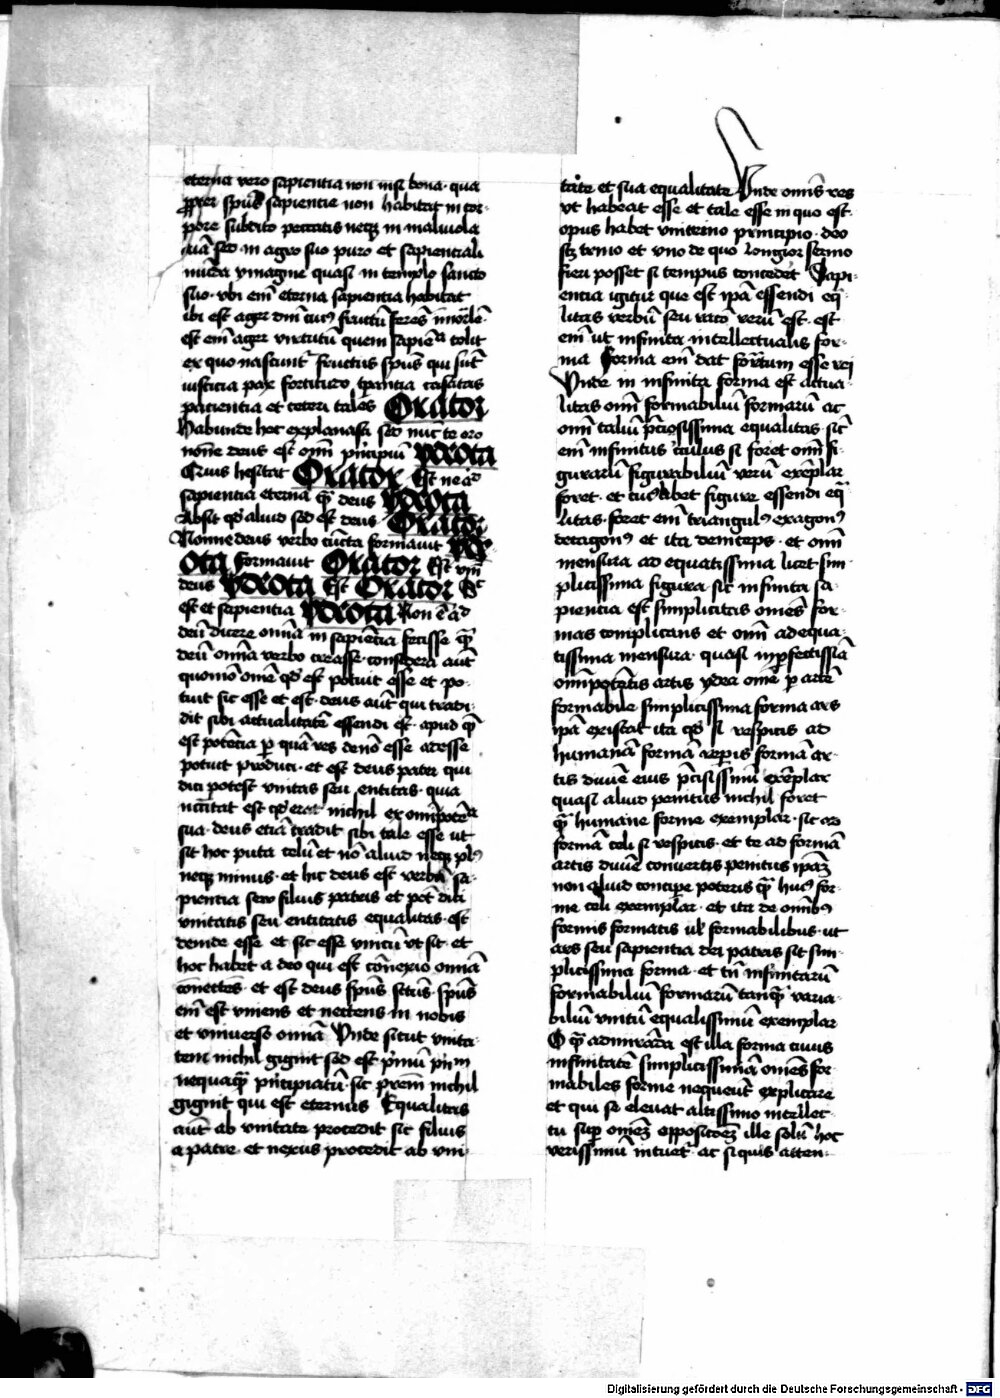 eterna vero sapientia non nisi bona · qua
propter spūs sapientie non habitat in cor-
pore subdito peccatis neqꝫ in malivola
aīa sed in agro suo puro et sapienciali
munda ymagine quasi in templo sancto
suo · vbi em̄ eterna sapientia habitat
ibi est ager dm̄ cuiꝰ fructū ferēs īmorlē
est em̄ ager virtutū quem sapiēᵃ colit
ex quo nascunt fructus spūs qui sūt
iusticia pax fortitudo tꝑantia castitas
pacientia et ceteri tales Orator
Habunde hoc explanasti sed nūc te oro
nōne deus est oīm pⁱncipiū ydiota
Quis hesitat Orator Est ne aᵈ
sapientia eterna qͣ̄ deus ydiota
Absit qd̄ aliud sed est deus Orator
Nonne deus verbo cūcta formavit ydi
ota formavit Orator Est vbū
deus ydiota Est Orator Sc
est et sapientia ydiota Non ē aᵈ
deū dicere omīa in sapiētia fecisse qͣ̄
deū omīa verbo creasse · considera autē
quomō omē qd̄ est potuit esse et po-
tuit sic esse et est · deus aūt qui tradi-
dit sibi actualitatē essendi est · apud quē
est potētia ꝑ quā res de nō esse ad esse
potuit produci · et est deus pater qui
dici potest vnitas seu entitas · quia
nc̄citat esse qd̄ erat nichil ex om̄ipotēᵃ
sua · deus etiā tradit sibi tale esse ut
sit hoc puta celū et nō aliud neqꝫ plꝰ
neqꝫ minus · et hic deus est verbū sa-
pientia seu filius patris et pōt dici
vnitatis seu entitatis equalitas · est
deinde esse et sic esse vnitū vt sit · et
hoc habet a deo qui est cōnexio omīa
cōnectēs · et est deus spūs sctūs · spūs
em̄ est vniens et nectens in nobis
et vniverso omīa Vnde sicut vnita-
tem nichil gignit sed est pⁱmū pⁱn̄
nequaqͣ̄ pⁱncipiatū · sic prem̄ nichil
gignit qui est eternus Equalitas
aūt ab vnitate procedit sic filius
a patre · et nexus procedit ab vni-
tate et sua equalitate Vnde om̄is res
vt habeat esse et tale esse in quo est ·
opus habet vnitrino principio · deo
scꝫ trino et vno de quo longior sermo
fieri posset si tempus concedet Sapi-
entia igitur que est ipā essendi eq̄-
litas verbū seu racio rerū est · est
em̄ ut infinita intellectualis for-
ma Forma em̄ dat formatum esse rei
Vnde in infinita forma est actua-
litas oīm formabiliū formarū ac
oīm taliū pⁱciosissima equalitas · sic̄
em̄ infinitus circulus si foret oīm fi-
gurarū figurabiliū verū exēplar
foret · et cuiꝰlibet figure essendi eq̄-
litas · foret em̄ triangulꝰ exagonꝰ
decagonꝰ et ita deinceps · et oīm
mensura adequatissima licet sim-
plicissima figura · sic infinita sa-
pientia est simplicitas omēs for-
mas complicans et oīm adequa-
tissima mensura · quasi in ꝑfectissīā
om̄ipotētis artis ydea omē ꝑ artē
formabile simplicissima forma ars
ipā existat ita qd̄ si respicis ad
humanā formā reperis formā ar-
tis divīe eius pⁱcisissimū exēplar
quasi aliud penitus nichil foret
qͣ̄ humane forme exemplar · sic ad
formā celi si respicis · et te ad formā
artis divīe convertis penitus ipāꝫ
non aliud concipere poteris qͣ̄ huiꝰ for-
me celi exemplar · et ita de om̄ibꝰ
formis formatis ul̄ formabilibus · ut
ars seu sapientia dei patris sit sim-
plicissima forma · et tn̄ infinitarū
formabiliū formarū tanqͣ̄ varia-
biliū vnicū equalissimū exemplar
O qͣ̄ admirāda est illa forma cuius
infinitatē simplicissimā omēs for-
mabiles forme nequeūt explicare
et qui se elevat altissimo intellec-
tu supꝛ omēꝫ oppositōeꝫ ille solū hoc
verissimū intuet · ac si quis atten-
Digitalisierung gefördert durch die Deutsche Forschungsgemeinschaft - DFG